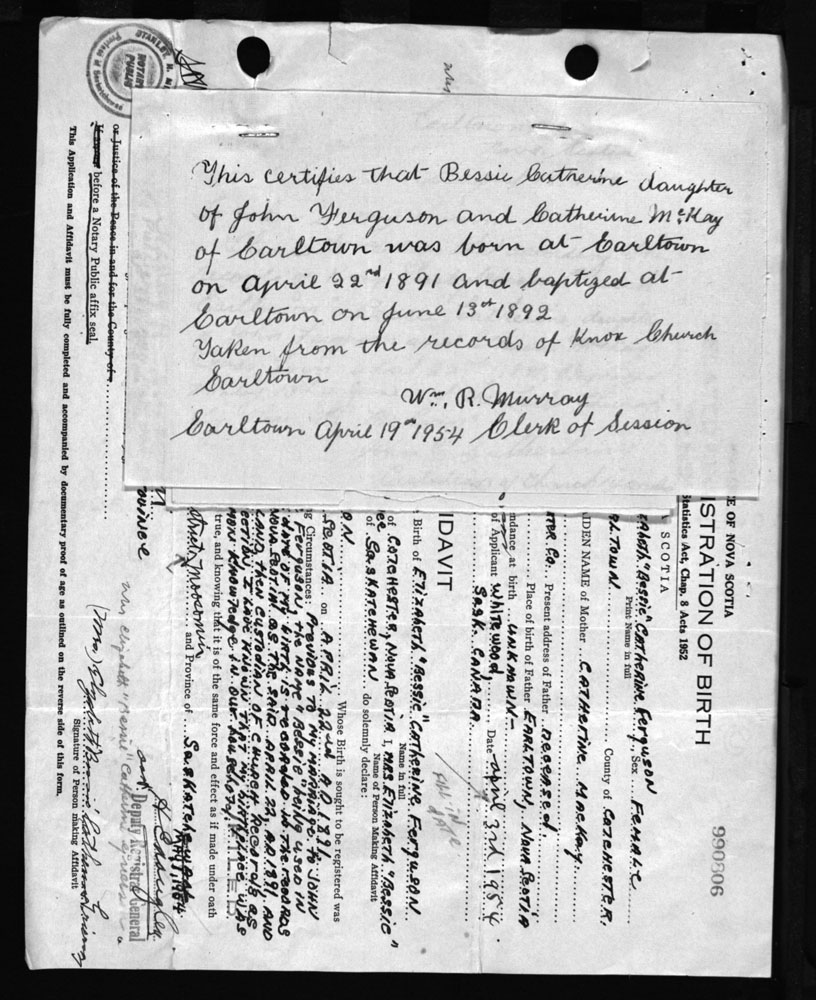 This certifies that Bessie Catherine daughter
of John Ferguson and Catherine McKay
of Earltown was born at Earltown
on April 22nd 1891 and baptized at
Earltown on June 13th 1892
Taken from the records of Knox Church
Earltown
Wm. R. Murray
Earltown April 19th 1954 Clerk of Session
990806
E OF NOVA SCOTIA
ISTRATION OF BIRTH
tatistics Act, Chap. 8 Acts 1952
SCOTIA
"Bessie" Catherine Ferguson Sex Female
Print Name in full
LTOWN County of Colchester,
IDEN NAME of Mother Catherine MacKay.
Co. Present address of Father Deceased.
Place of birth of Father Earltown, Nova Scotia
ndance at birth Unknown-
of Applicant Whitewood, Date April 3rd 1954.
Sask. Canada.
IDAVIT
Fill in the
Birth of Elizabeth "Bessie" Catherine Ferguson
Name in full
of Colchester, Nova Scotia I, Mrs Elizabeth "Bessie"
Name of Person Making Affidavit
of Saskatchewan do solemnly declare:
Whose Birth is sought to be registered was
Scotia on April 22nd A.D. 1891.
g Circumstances: Previous to my marriage to John
Ferguson, the name "Bessie" being used in
date of my birth is recorded in the records
Nova Scotia as the said April 22, A.D. 1891, and
then custodian of church records as
I have known that my birthplace was
knowledge in our household.
FILED
true, and knowing that it is of the same force and effect as if made under oath
Moosomin and Province of Saskatchewan
MAY 1, 1954
Deputy Registrar General
Mrs Elizabeth "Bessie" Catherine
Signature of Person making Affidavit
ovince
or Justice of the Peace in and for the County of
before a Notary Public affix seal.
This Application and Affidavit must be fully completed and accompanied by documentary proof of age as outlined on the reverse side of this form.
STANLEY H.
NOTARY
PUBLIC
Province of Saskatchewan